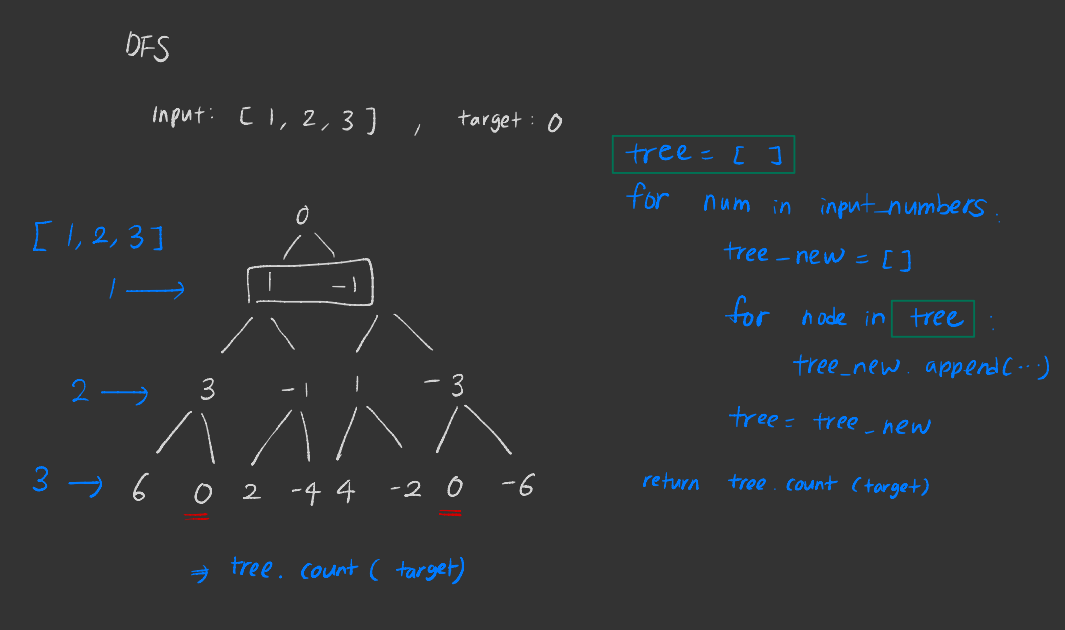 DFS
Input: [ 1, 2, 3 ] , target: 0
[ 1, 2, 3 ]
0
1 → 1 -1
2 → 3 -1 1 -3
3 → 6 0 2 -4 4 -2 0 -6
⇒ tree.count ( target)
tree = [ ]
for num in input_numbers.
tree_new = [ ]
for node in tree :
tree_new. append(...)
tree = tree_new
return tree.count (target)